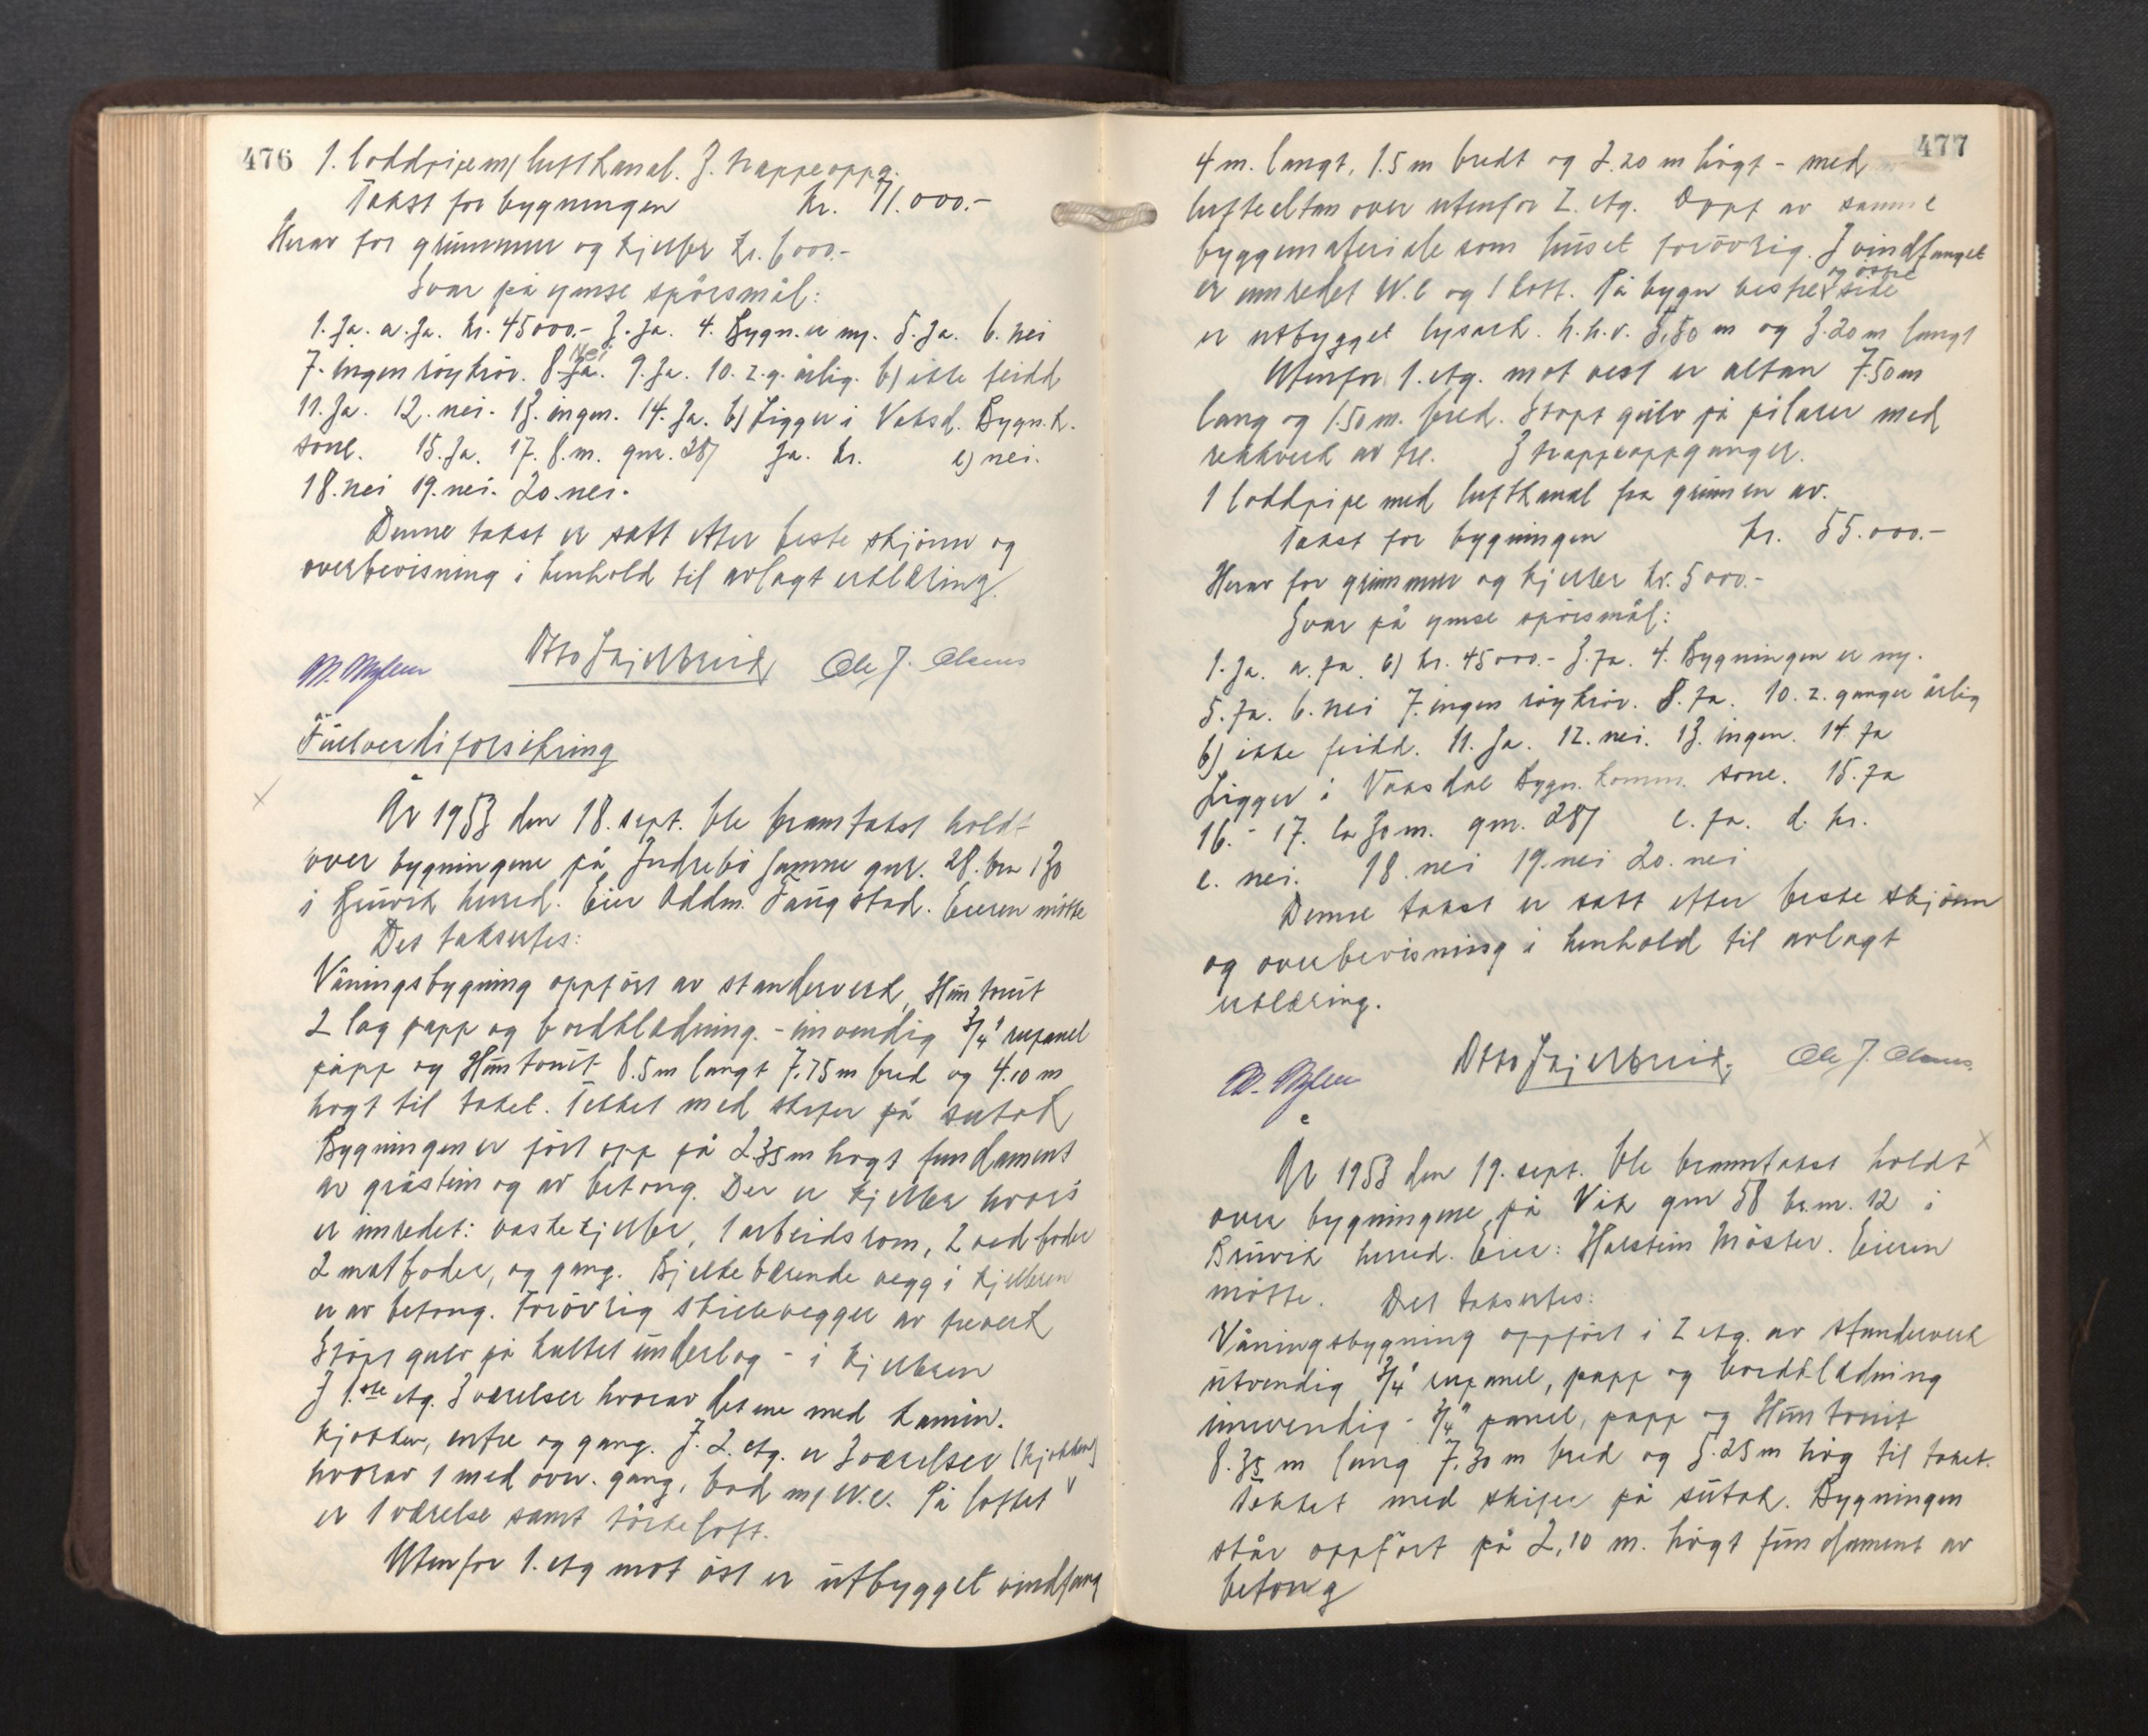 476
1. loddpipe m/ luftkanal. 3. trappeoppg.
Takst for bygningen kr. 71.000.-
Herav for grunnmur og kjeller kr. 6000.-
Svar på ymse spörsmål:
1. Ja. a. Ja. kr. 45000.- 3. Ja. 4. Bygn. er ny. 5. Ja. 6. nei
Nei
7. ingen röykrör. 8. Ja. 9. Ja. 10. 2. g. årlig. b) ikke feidd
11. Ja. 12. nei. 13. ingen. 14. Ja. b) Ligger i Vaksd. Bygn. k.
sone. 15. Ja. 17. 8. m. gnr. 28/ Ja. kr. e) nei.
18. nei 19. nei. 20. nei.
Denne takst er satt etter beste skjönn og
overbevisning i henhold til avlagt erklæring.
Otto Skjelbreid Ole J.
Fullverdiforsikring
År 1953 den 18. sept. ble branntakst holdt
over bygningene på Indrebö Samne gnr. 28. bnr 130
i Bruvik herred. Eier Oddm. Faugstad. Eieren mötte
Det takseres:
Våningsbygning oppfört av standerverk, Huntonit
2 lag papp og bordklædning. - innvendig 3/4" rupanel
papp og Huntonit 8.5 m langt 7.75 m bred og 4.10 m
högt til taket. Tekket med skifer på sutak
Bygningen er fört opp på 2.35 m högt fundament
av gråstein og av betong. Der er kjeller hvori
er innredet: vaskekjeller, 1 arbeidsrom, 2 vedboder
2 matboder, og gang. Bjelkebærende vegg i kjelleren
er av betong. Forövrig skillevegger av treverk
Stöpt gulv på kultet underlag - i kjelleren
I 1.ste etg. 3 værelser hvorav det ene med kamin.
kjökken, entre og gang. I. 2. etg. er 3 værelser (kjökken)
hvorav 1 med ovn. gang, bad m/ W.C. På loftet
er 1 værelse samt törkeloft.
Utenfor 1. etg mot öst er utbygget vindfang
477
4 m. langt, 1.5 m bredt og 2.20 m högt - med
luftealtan over utenfor 2. etg. Oppf av samme
byggemateriale som huset forövrig. I vindfanget
og östre
er innredet W.C og 1 kott. På bygn vestre side
er utbygget lysark. h.h.v. 5,50 m og 3.20 m langt
Utenfor 1. etg. mot vest er altan 7.50 m
lang og 1.50 m. bred. Stöpt gulv på pilarer med
rekkverk av tre. 3 trappeoppganger.
1 loddpipe med luftkanal fra grunnen av.
Takst for bygningen kr. 55.000.-
Herav for grunnmur og kjeller kr. 5000.-
Svar på ymse spörsmål:
1. Ja. a. Ja. b) kr. 45000.- 3. Ja. 4. Bygningen er ny.
5. Ja. 6. nei 7. ingen röykrör. 8. Ja. 10. 2. ganger årlig
b) ikke feidd. 11. Ja. 12. nei. 13. ingen. 14. Ja
Ligger i Vaksdal Bygn. komm. sone. 15. Ja
16. - 17. ca 30 m. gnr. 28/ c. Ja. d. kr.
e. nei. 18. nei 19. nei 20. nei
Denne takst er satt etter beste skjönn
og overbevisning i henhold til avlagt
erklæring.
Otto Skjelbreid. Ole J.
År 1953 den 19. sept. ble branntakst holdt
over bygningene på Vik gnr 58 br.nr. 12 i
Bruvik herred. Eier: Halstein Möster. Eieren
mötte. Det takseres:
Våningsbygning oppfört i 2 etg. av standerverk
utvendig 3/4" rupanel, papp og bordklædning
innvendig - 3/4" panel, papp og Huntonit
8.35 m lang 7,30 m bred og 5.25 m hög til taket.
Tekket med skifer på sutak. Bygningen
står oppfört på 2,10 m. högt fundament av
betong